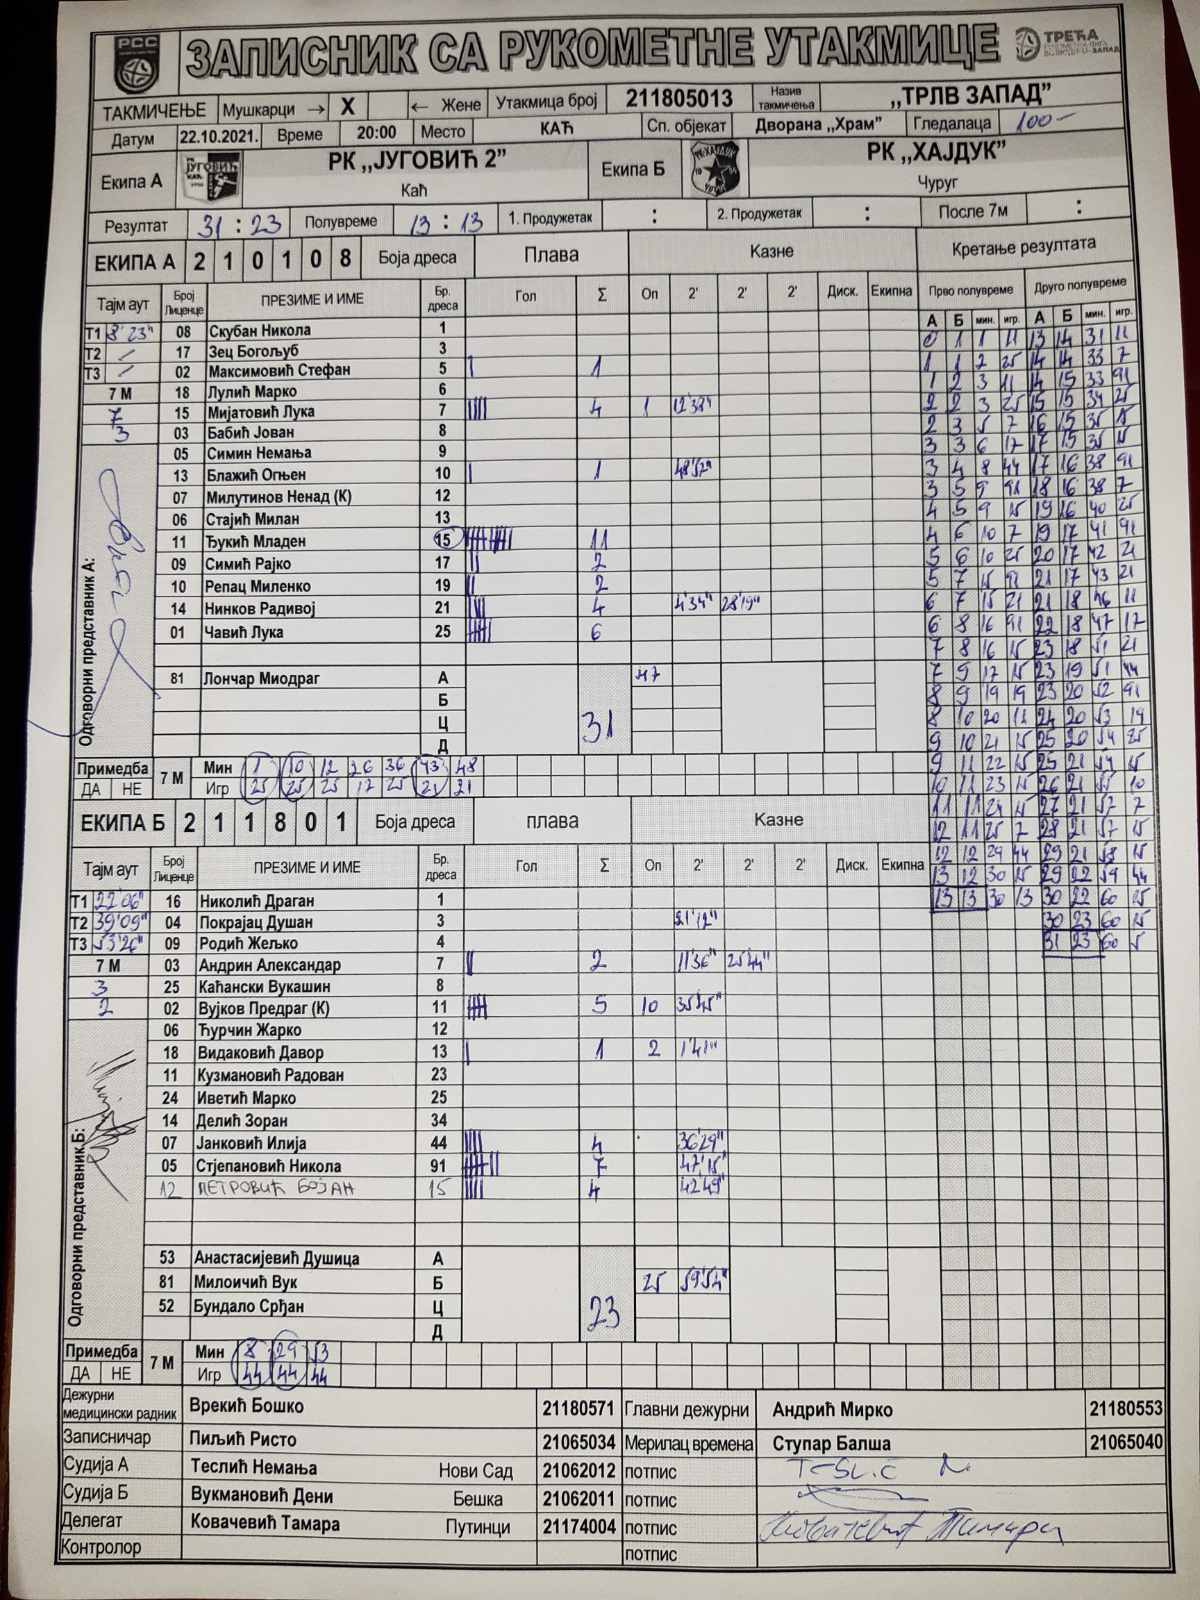 РСС
ЗАПИСНИК СА РУКОМЕТНЕ УТАКМИЦЕ
ТРЕЋА
ТАКМИЧЕЊЕ Мушкарци → X ← Жене Утакмица број 211805013 Назив такмичења ,,ТРЛВ ЗАПАД"
Датум 22.10.2021. Време 20:00 Место КАЋ Сп. објекат Дворана ,,Храм" Гледалаца 100-
Екипа А РК ,,ЈУГОВИЋ 2" Каћ Екипа Б РК ,,ХАЈДУК" Чуруг
Резултат 31 : 23 Полувреме 13 : 13 1. Продужетак : 2. Продужетак : После 7м :
ЕКИПА А 2 1 0 1 0 8 Боја дреса Плава Казне Кретање резултата
Тајм аут Број Лиценце ПРЕЗИМЕ И ИМЕ Бр. дреса Гол Σ Оп 2' 2' 2' Диск. Екипна Прво полувреме Друго полувреме
А Б мин. игр. А Б мин. игр.
Т1 8'23" 08 Скубан Никола 1
Т2 / 17 Зец Богољуб 3
Т3 / 02 Максимовић Стефан 5 1
7 М 18 Лулић Марко 6
7 15 Мијатовић Лука 7 4 1 12'38"
3 03 Бабић Јован 8
05 Симин Немања 9
13 Блажић Огњен 10 1 48'52"
07 Милутинов Ненад (К) 12
06 Стајић Милан 13
11 Ђукић Младен 15 11
09 Симић Рајко 17 2
10 Репац Миленко 19 2
14 Нинков Радивој 21 4 4'34" 28'19"
01 Чавић Лука 25 6
81 Лончар Миодраг А 47
Б
Ц 31
Д
Одговорни представник А:
Примедба ДА НЕ 7 М
Мин 1 10 12 26 36 43 48
Игр 25 25 25 17 25 21 21
0 1 1 11 13 14 31 11
1 1 2 25 14 14 33 7
1 2 3 11 14 15 33 91
2 2 3 25 15 15 34 25
2 3 5 7 16 15 35 15
3 3 6 17 17 15 35 15
3 4 8 44 17 16 38 91
3 5 9 91 18 16 38 7
4 5 9 15 19 16 40 25
4 6 10 7 19 17 41 91
5 6 10 25 20 17 42 21
5 7 15 91 21 17 43 21
6 7 15 21 21 18 46 11
6 8 16 91 22 18 47 17
7 8 16 15 23 18 51 21
7 9 17 15 23 19 51 44
8 9 19 19 23 20 52 91
8 10 20 11 24 20 53 19
9 10 21 15 25 20 54 25
9 11 22 15 25 21 54 15
10 11 23 15 26 21 55 10
11 11 24 15 27 21 57 7
12 11 25 7 28 21 57 15
12 12 29 44 29 21 58 15
13 12 30 15 29 22 59 44
13 13 30 13 30 22 60 25
30 23 60 15
31 23 60 5
ЕКИПА Б 2 1 1 8 0 1 Боја дреса плава Казне
Тајм аут Број Лиценце ПРЕЗИМЕ И ИМЕ Бр. дреса Гол Σ Оп 2' 2' 2' Диск. Екипна
Т1 22'06" 16 Николић Драган 1
Т2 39'09" 04 Покрајац Душан 3 21'12"
Т3 53'26" 09 Родић Жељко 4
7 М 03 Андрин Александар 7 2 11'36" 25'44"
3 25 Каћански Вукашин 8
2 02 Вујков Предраг (К) 11 5 10 35'45"
06 Ћурчин Жарко 12
18 Видаковић Давор 13 1 2 1'41"
11 Кузмановић Радован 23
24 Иветић Марко 25
14 Делић Зоран 34
07 Јанковић Илија 44 4 36'29"
05 Стјепановић Никола 91 7 47'15"
12 ПЕТРОВИЋ БОЈАН 15 4 42'49"
53 Анастасијевић Душица А
81 Милоичић Вук Б 25 59'54"
52 Бундало Срђан Ц 23
Д
Одговорни представник Б:
Примедба ДА НЕ 7 М
Мин 8 29 53
Игр 44 44 44
Дежурни медицински радник Врекић Бошко 21180571 Главни дежурни Андрић Мирко 21180553
Записничар Пиљић Ристо 21065034 Мерилац времена Ступар Балша 21065040
Судија А Теслић Немања Нови Сад 21062012 потпис
Судија Б Вукмановић Дени Бешка 21062011 потпис
Делегат Ковачевић Тамара Путинци 21174004 потпис Ковачевић Тамара
Контролор потпис